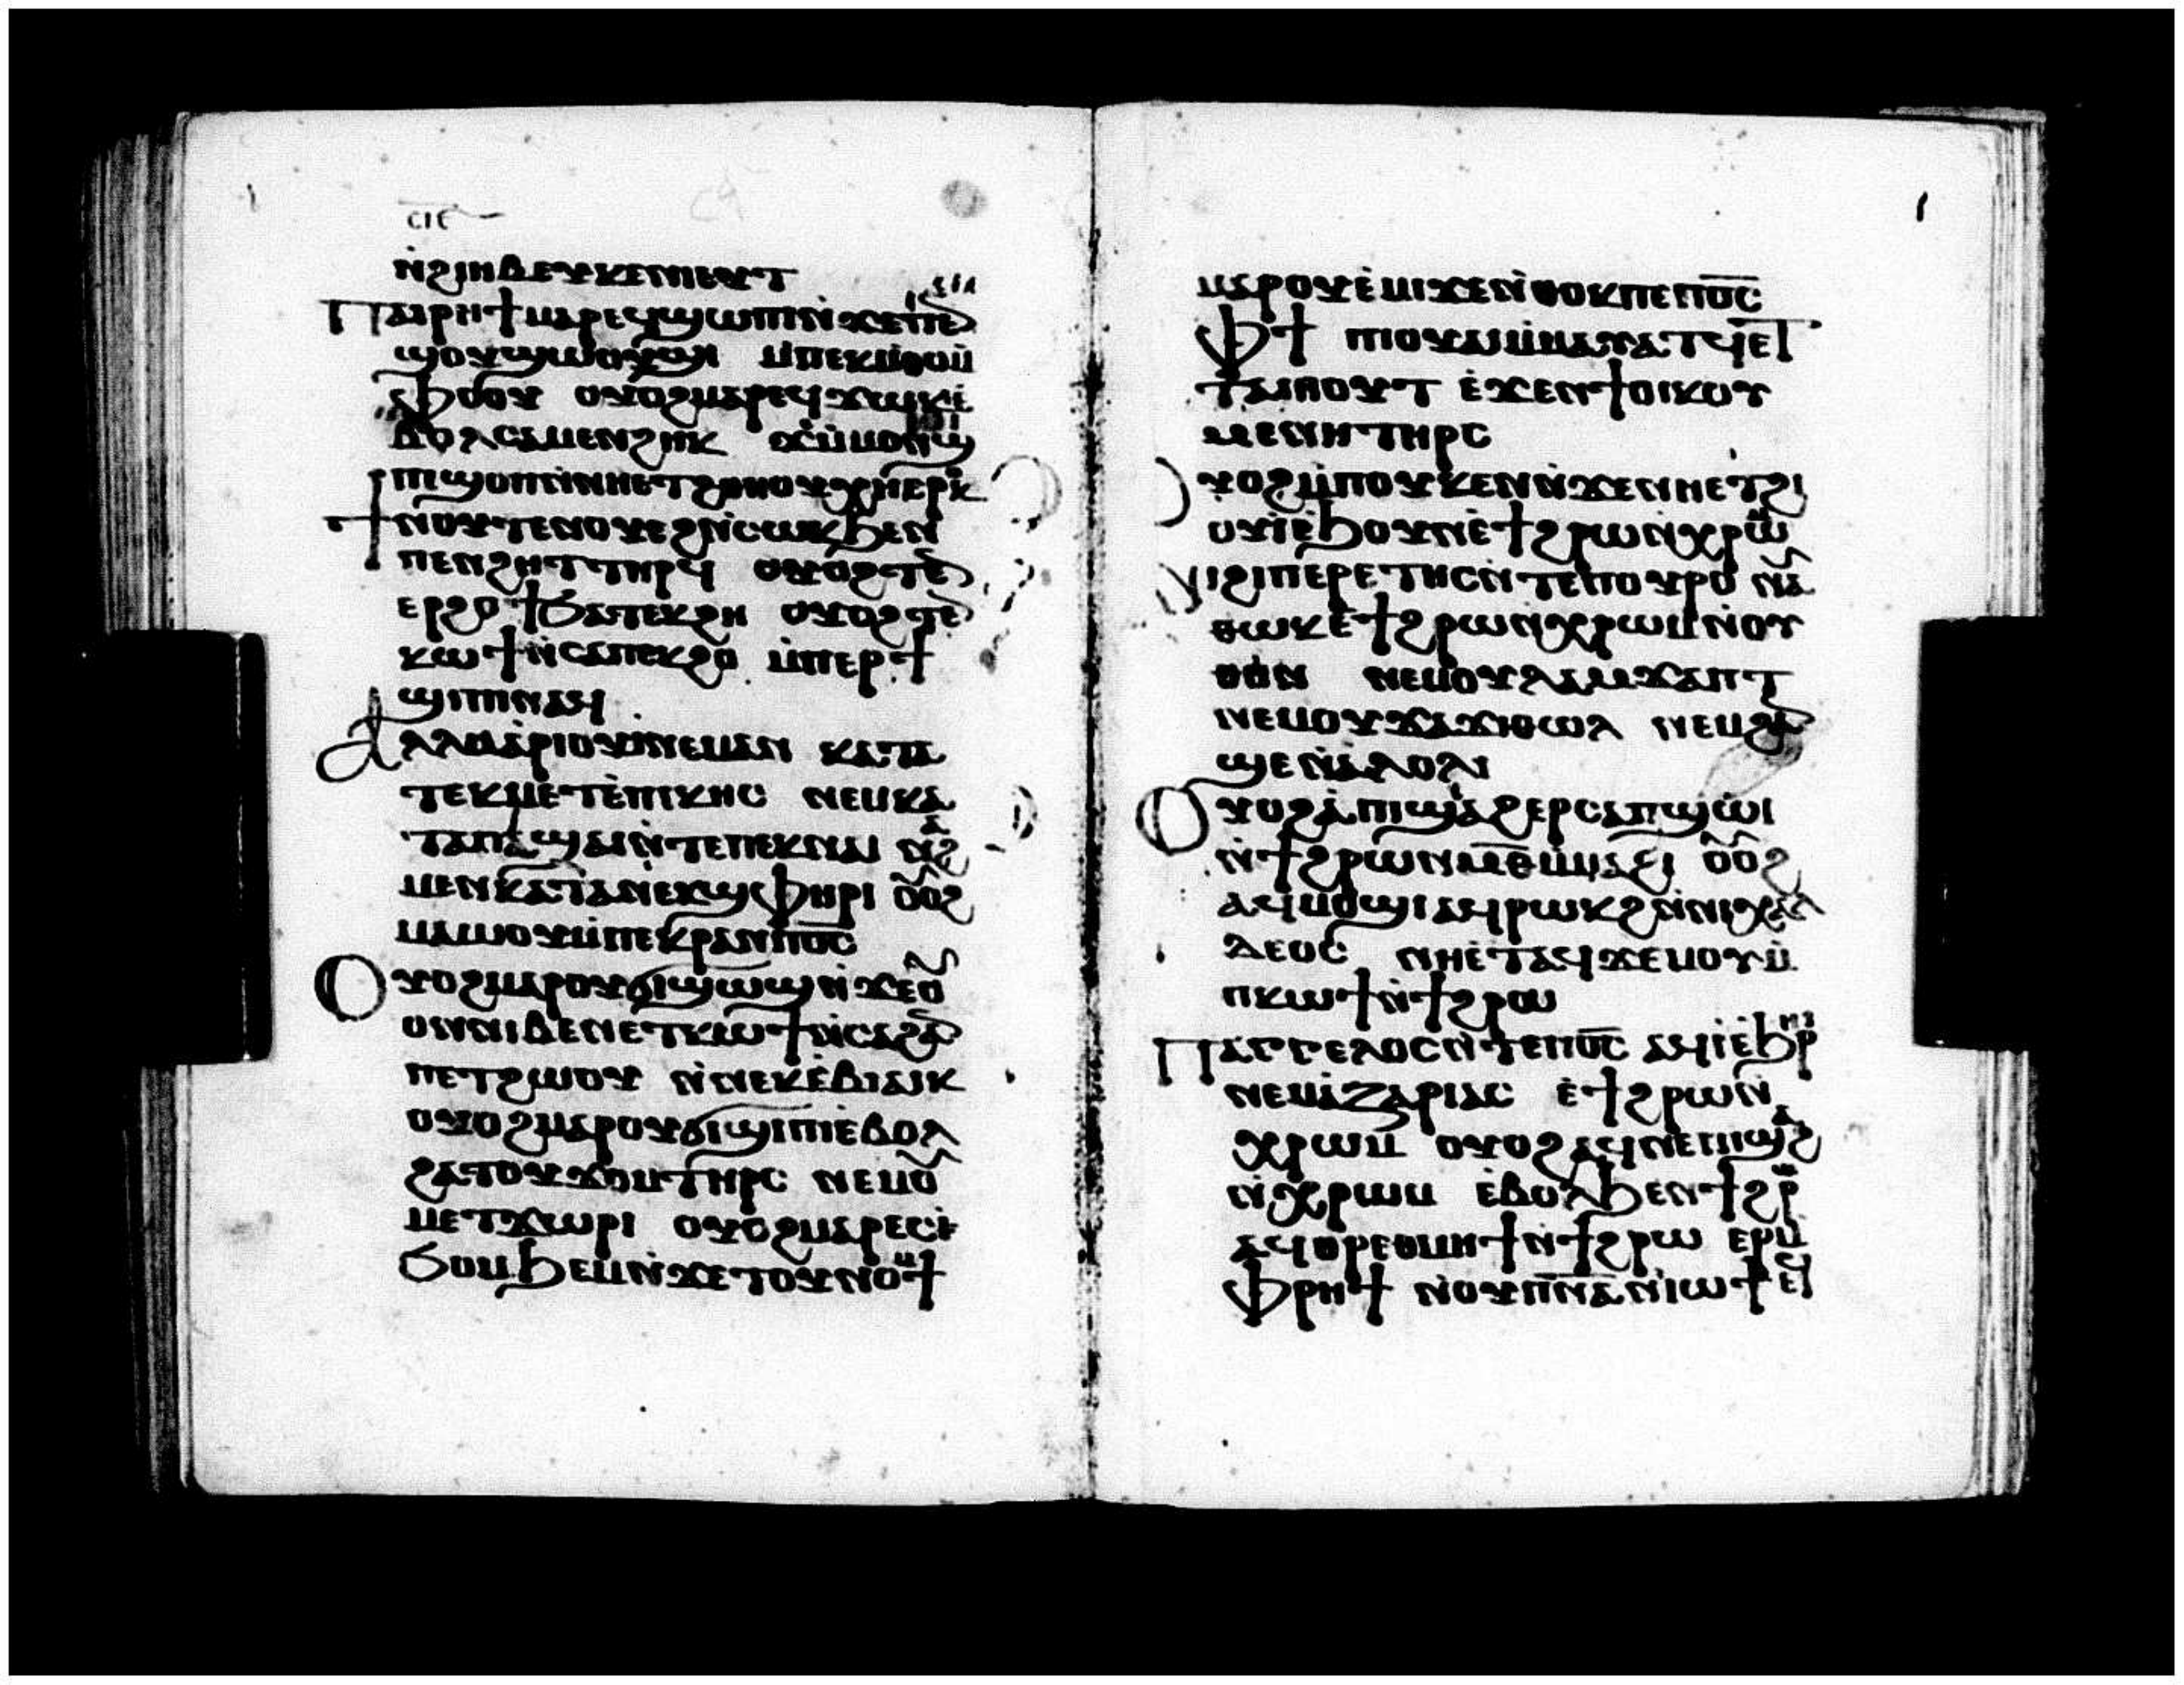 ⲥⲓⲉ
ⲛ̀ϩⲓⲏⲃ ⲉⲩⲕⲉⲛⲓⲱⲟⲩⲧ
Ⲡⲁⲓⲣⲏϯ ⲙⲁⲣⲉϥϣⲱⲡⲓ ⲛ̀ϫⲉⲡⲉⲛ
ϣⲟⲩϣⲱⲟⲩϣⲓ ⲙ̀ⲡⲉⲕⲙ̀ⲑⲟ ⲙ̀
ⲫⲟⲟⲩ ⲟⲩⲟϩ ⲙⲁⲣⲉϥϫⲱⲕ ⲉ̀
ⲃⲟⲗ ⲥⲁⲙⲉⲛϩⲏⲕ ϫⲉ ⲙ̀ⲙⲟⲛ ϣⲓ
ⲡⲓ ϣⲟⲡ ⲛ̀ⲛⲏⲉⲧϩⲑⲏⲟⲩ ⲭⲏ ⲉⲣⲟⲕ
Ϯⲛⲟⲩ ⲧⲉⲛⲟⲩⲉϩ ⲛ̀ⲥⲱⲕ ϧⲉⲛ
ⲡⲉⲛϩⲏⲧ ⲧⲏⲣϥ ⲟⲩⲟϩ ⲧⲉⲛ
ⲉⲣϩⲟϯ ϧⲁⲧⲉⲕϩⲏ ⲟⲩⲟϩ ⲧⲉⲛ
ⲕⲱϯ ⲛ̀ⲥⲁⲡⲉⲕϩⲟ ⲙ̀ⲡⲉⲣϯ
ϣⲓⲡⲓ ⲛⲁⲛ
Ⲁⲗⲗⲁ ⲁ̀ⲣⲓⲟⲩⲓ̀ ⲛⲉⲙⲁⲛ ⲕⲁⲧⲁ
ⲧⲉⲕⲙⲉⲧⲉ̀ⲡⲓⲕⲏⲥ ⲛⲉⲙ ⲕⲁ
ⲧⲁ ⲡⲁ̀ϣⲁⲓ ⲛ̀ⲧⲉ ⲡⲉⲕⲛⲁⲓ ⲛⲁϩ
ⲙⲉⲛ ⲕⲁⲧⲁ ⲛⲉⲕϣⲫⲏⲣⲓ ⲟⲩⲟϩ
ⲙⲁⲱⲟⲩ ⲙ̀ⲡⲉⲕⲣⲁⲛ ⲡⲟ̅ⲥ̅
Ⲟⲩⲟϩ ⲙⲁⲣⲟⲩϭⲓϣⲱϣ ⲛ̀ϫⲉ ⲟⲩ
ⲟⲛ ⲛⲓⲃⲉⲛ ⲉⲧⲕⲱϯ ⲛ̀ⲥⲁϩⲁⲛ
ⲡⲉⲧϩⲱⲟⲩ ⲛ̀ⲛⲉⲕⲉ̀ⲃⲓⲁⲓⲕ
ⲟⲩⲟϩ ⲙⲁⲣⲟⲩϭⲓϣⲓⲡⲓ ⲉ̀ⲃⲟⲗ
ϩⲁ ⲧⲟⲩϫⲟⲙ ⲧⲏⲣⲥ ⲛⲉⲙ ⲟⲩ
ⲙⲉⲧϫⲱⲣⲓ ⲟⲩⲟϩ ⲙⲁⲣⲉⲥ
ϧⲟⲙϧⲉⲙ ⲛ̀ϫⲉ ⲧⲟⲩⲛⲟⲙϯ
ⲙⲁⲣⲟⲩⲉ̀ⲙⲓ ϫⲉ ⲛ̀ⲑⲟⲕ ⲡⲉ ⲡⲟ̅ⲥ̅
Ⲫϯ ⲡⲓⲟⲩⲁⲓ ⲙ̀ⲙⲁⲩⲁⲧϥ ⲉⲧ
ⲧⲁⲓⲏⲟⲩⲧ ⲉ̀ϫⲉⲛ ϯⲟⲓⲕⲟⲩ
ⲙⲉⲛⲏ ⲧⲏⲣⲥ
Ⲟⲩⲟϩ ⲙ̀ⲡⲟⲩⲕⲉⲛ ⲛ̀ϫⲉ ⲛⲏⲉⲧϩⲓ
ⲟⲩⲓ̀ ⲉ̀ϧⲟⲩⲛ ⲉ̀ϯϩⲣⲱ ⲛ̀ⲭⲣⲱⲙ
Ⲛⲓϩⲓⲡⲉⲣⲉⲧⲏⲥ ⲛ̀ⲧⲉ ⲡⲟⲩⲣⲟ ⲛⲁⲩ
ⲑⲱⲕ ⲉ̀ϯϩⲣⲱ ⲛ̀ⲭⲣⲱⲙ ⲛ̀ⲟⲩ
ⲑⲏⲛ ⲛⲉⲙ ⲟⲩⲗⲁⲙϫⲁⲡⲧ
ⲛⲉⲙ ⲟⲩϫⲁϫⲓⲑⲱⲗ ⲛⲉⲙ ϩⲁⲛ
ϣⲉ ⲛ̀ⲁ̀ⲗⲟⲗⲓ
Ⲟⲩⲟϩ ⲁ̀ ⲡⲓϣⲁϩ ⲉⲣⲥⲁⲡϣⲱⲓ
ⲛ̀ϯϩⲣⲱ ⲛ̀ⲙ̅ⲑ̅ ⲙ̀ⲙⲁϩⲓ ⲟⲩⲟϩ
ⲁϥⲙⲟϣⲓ ⲁϥⲣⲱⲕϩ ⲛ̀ⲛⲓⲭⲁⲗ
ⲇⲉⲟⲥ ⲛⲏⲉ̀ⲧⲁϥϫⲉⲙⲟⲩ ⲙ̀
ⲡⲕⲱϯ ⲛ̀ϯϩⲣⲱ
Ⲡⲁⲅⲅⲉⲗⲟⲥ ⲛ̀ⲧⲉ ⲡⲟ̅ⲥ̅ ⲁϥⲓ̀ ⲉ̀ϧⲣⲏⲓ
ⲛⲉⲙ ⲁ̀ⲍⲁⲣⲓⲁⲥ ⲉ̀ϯϩⲣⲱ ⲛ̀
ⲭⲣⲱⲙ ⲟⲩⲟϩ ⲁϥⲛⲉϩ ⲡⲓϣⲁϩ
ⲛ̀ⲭⲣⲱⲙ ⲉ̀ⲃⲟⲗ ϧⲉⲛ ϯϩⲣⲱ
ⲁϥⲑⲣⲉ ⲑⲙⲏϯ ⲛ̀ϯϩⲣⲱ ⲉⲣ ⲙ̀
ⲫⲣⲏϯ ⲛ̀ⲟⲩⲡ̅ⲛ̅ⲁ̅ ⲛ̀ⲓⲱϯ ⲉϥ